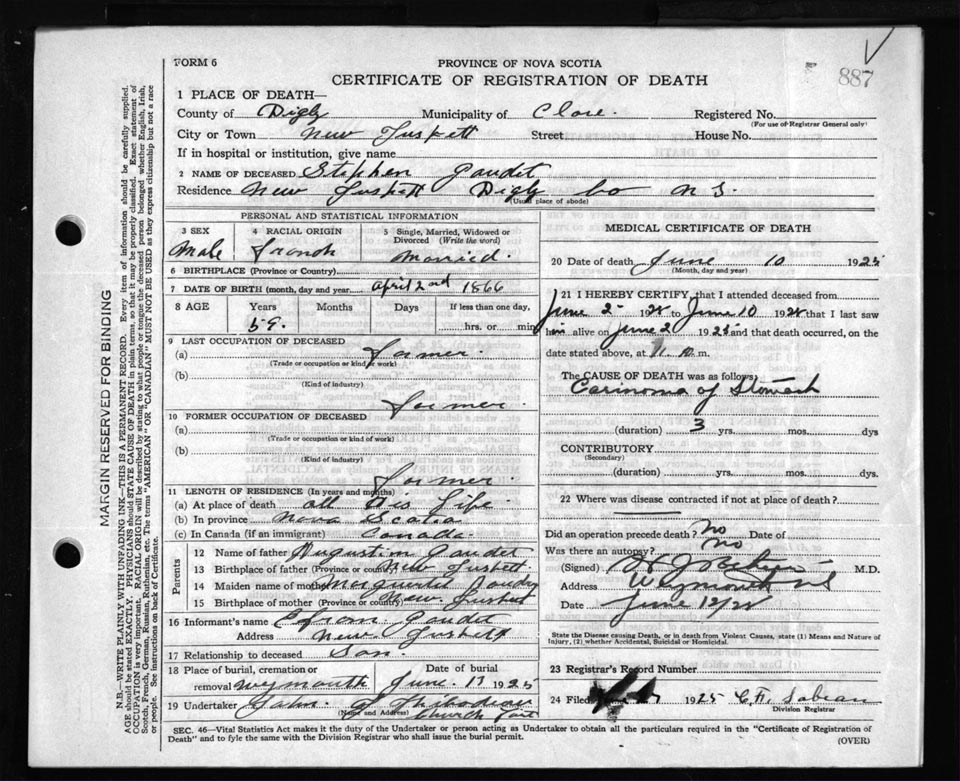 887
FORM 6
PROVINCE OF NOVA SCOTIA
CERTIFICATE OF REGISTRATION OF DEATH
MARGIN RESERVED FOR BINDING
N.B.—WRITE PLAINLY WITH UNFADING INK—THIS IS A PERMANENT RECORD. Every item of information should be carefully supplied.
AGE should be stated EXACTLY. PHYSICIANS should STATE CAUSE OF DEATH in plain terms, so that it may be properly classified. Exact statement of
OCCUPATION is very important. RACIAL ORIGIN will be described by stating to what people or tongue the deceased person belonged whether English, Irish,
Scotch, French, German, Russian, Ruthenian, etc. The terms "AMERICAN" or "CANADIAN" MUST NOT BE USED as they express citizenship but not a race
or people. See instructions on back of Certificate.
1 PLACE OF DEATH—
County of Digby Municipality of Clare. Registered No.
(For use of Registrar General only)
City or Town New Tuskett Street House No.
If in hospital or institution, give name
2 NAME OF DECEASED Stephen Gaudet
Residence New Tuskett Digby Co N S.
(Usual place of abode)
PERSONAL AND STATISTICAL INFORMATION
3 SEX Male
4 RACIAL ORIGIN French
5 Single, Married, Widowed or Divorced (Write the word) Married.
6 BIRTHPLACE (Province or Country)
7 DATE OF BIRTH (month, day and year) April 2nd 1866
8 AGE Years Months Days If less than one day,
59. hrs. or min
9 LAST OCCUPATION OF DECEASED
(a) farmer.
(Trade or occupation or kind of work)
(b)
(Kind of industry)
farmer.
10 FORMER OCCUPATION OF DECEASED
(a)
(Trade or occupation or kind of work)
(b)
(Kind of industry)
farmer
11 LENGTH OF RESIDENCE (In years and months)
(a) At place of death all his life
(b) In province Nova Scotia
(c) In Canada (if an immigrant) Canada.
Parents
12 Name of father Augustim Gaudet
13 Birthplace of father (Province or country) New Tuskett
14 Maiden name of mother
15 Birthplace of mother (Province or country) New Tuskett
16 Informant's name Gaudet
Address New Tuskett
17 Relationship to deceased Son.
18 Place of burial, cremation or removal Weymouth
Date of burial June 13 1925
19 Undertaker John
(Name and Address) Church Point
MEDICAL CERTIFICATE OF DEATH
20 Date of death June 10 1925
(Month, day and year)
21 I HEREBY CERTIFY, that I attended deceased from
June 2 to June 10 that I last saw
him alive on June 2 1925 and that death occurred, on the
date stated above, at 11. m.
The CAUSE OF DEATH was as follows:
Carinoma of Stomach
(duration) 3 yrs. mos. dys
CONTRIBUTORY
(Secondary)
(duration) yrs. mos. dys.
22 Where was disease contracted if not at place of death?
Did an operation precede death? No Date of
Was there an autopsy? No
(Signed) M.D.
Address Weymouth
Date June 12
State the Disease causing Death, or in death from Violent Causes, state (1) Means and Nature of
Injury, (2) whether Accidental, Suicidal or Homicidal.
23 Registrar's Record Number
24 Filed 1925 C. F. Sabean
Division Registrar
SEC. 46—Vital Statistics Act makes it the duty of the Undertaker or person acting as Undertaker to obtain all the particulars required in the "Certificate of Registration of
Death" and to fyle the same with the Division Registrar who shall issue the burial permit.
(OVER)